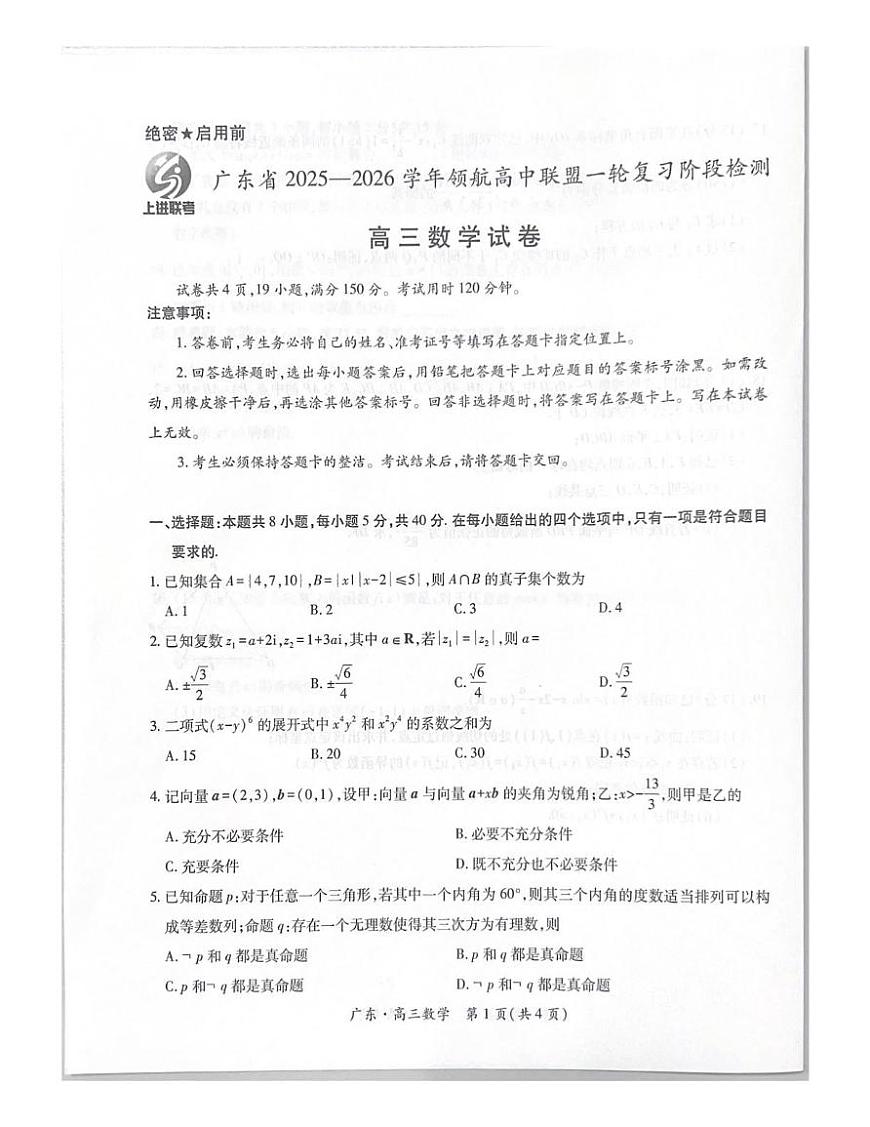 绝密★启用前
上进联考
广东省 2025—2026 学年领航高中联盟一轮复习阶段检测
高三数学试卷
试卷共 4 页,19 小题,满分 150 分。考试用时 120 分钟。
注意事项:
1. 答卷前,考生务必将自己的姓名、准考证号等填写在答题卡指定位置上。
2. 回答选择题时,选出每小题答案后,用铅笔把答题卡上对应题目的答案标号涂黑。如需改
动,用橡皮擦干净后,再选涂其他答案标号。回答非选择题时,将答案写在答题卡上。写在本试卷
上无效。
3. 考生必须保持答题卡的整洁。考试结束后,请将答题卡交回。
一、选择题:本题共 8 小题,每小题 5 分,共 40 分. 在每小题给出的四个选项中,只有一项是符合题目
要求的.
1. 已知集合 A={4,7,10},B={x||x-2|≤5},则 A∩B 的真子集个数为
A. 1 B. 2 C. 3 D. 4
2. 已知复数 z₁=a+2i,z₂=1+3ai,其中 a∈R,若|z₁|=|z₂|,则 a=
A. ±√3/2 B. ±√6/4 C. √6/4 D. √3/2
3. 二项式(x-y)⁶ 的展开式中 x⁴y² 和 x²y⁴ 的系数之和为
A. 15 B. 20 C. 30 D. 45
4. 记向量 a=(2,3),b=(0,1),设甲:向量 a 与向量 a+xb 的夹角为锐角;乙:x>-13/3,则甲是乙的
A. 充分不必要条件 B. 必要不充分条件
C. 充要条件 D. 既不充分也不必要条件
5. 已知命题 p:对于任意一个三角形,若其中一个内角为 60°,则其三个内角的度数适当排列可以构
成等差数列;命题 q:存在一个无理数使得其三次方为有理数,则
A. ¬ p 和 q 都是真命题 B. p 和 q 都是真命题
C. p 和¬ q 都是真命题 D. ¬ p 和¬ q 都是真命题
广东·高三数学 第 1 页(共 4 页)